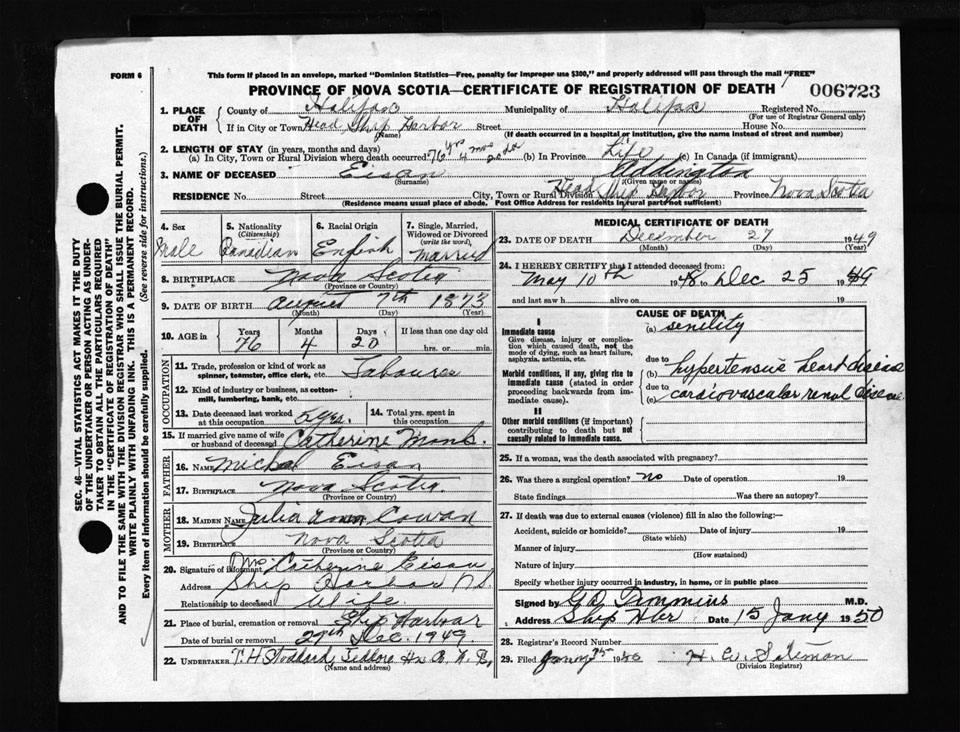 FORM 6
This form if placed in an envelope, marked "Dominion Statistics—Free, penalty for improper use $300," and properly addressed will pass through the mail "FREE"
PROVINCE OF NOVA SCOTIA—CERTIFICATE OF REGISTRATION OF DEATH
006723
SEC. 46—VITAL STATISTICS ACT MAKES IT THE DUTY
OF THE UNDERTAKER OR PERSON ACTING AS UNDER-
TAKER TO OBTAIN ALL THE PARTICULARS REQUIRED
IN THE "CERTIFICATE OF REGISTRATION OF DEATH"
AND TO FILE THE SAME WITH THE DIVISION REGISTRAR WHO SHALL ISSUE THE BURIAL PERMIT.
WRITE PLAINLY WITH UNFADING INK. THIS IS A PERMANENT RECORD.
Every item of information should be carefully supplied. (See reverse side for instructions.)
1. PLACE OF DEATH County of Halifax Municipality of Halifax Registered No.
(For use of Registrar General only)
If in City or Town Head Ship Harbor Street House No.
(Name) (If death occurred in a hospital or institution, give the name instead of street and number)
2. LENGTH OF STAY (in years, months and days)
(a) In City, Town or Rural Division where death occurred 76 yrs 4 mos 20 da (b) In Province Life (c) In Canada (if immigrant)
3. NAME OF DECEASED Eisan Addington
(Surname) (Given name or names)
RESIDENCE No. Street City, Town or Rural Division Head Ship Harbor Province Nova Scotia
(Residence means usual place of abode. Post Office Address for residents in rural parts not sufficient)
4. Sex Male
5. Nationality (Citizenship) Canadian
6. Racial Origin English
7. Single, Married, Widowed or Divorced (write the word) Married
8. BIRTHPLACE Nova Scotia
(Province or Country)
9. DATE OF BIRTH August 7th 1873
(Month) (Day) (Year)
10. AGE in Years 76 Months 4 Days 20 If less than one day old hrs. or min.
OCCUPATION
11. Trade, profession or kind of work as spinner, teamster, office clerk, etc. Labourer
12. Kind of industry or business, as cotton-mill, lumbering, bank, etc.
13. Date deceased last worked at this occupation 5 yrs.
14. Total yrs. spent in this occupation
15. If married give name of wife or husband of deceased Catherine
FATHER
16. NAME Michal Eisan
17. BIRTHPLACE Nova Scotia
(Province or Country)
MOTHER
18. MAIDEN NAME Julia Cowan
19. BIRTHPLACE Nova Scotia
(Province or Country)
20. Signature of informant Mrs Catherine Eisan
Address Ship Harbor N.S.
Relationship to deceased Wife.
21. Place of burial, cremation or removal Ship Harbour
Date of burial or removal 29th Dec. 1949.
22. UNDERTAKER T. H. Stoddard, Jeddore
(Name and address)
MEDICAL CERTIFICATE OF DEATH
23. DATE OF DEATH December 27 1949
(Month) (Day) (Year)
24. I HEREBY CERTIFY that I attended deceased from:
May 10th 1948 to Dec 25 1949
and last saw h alive on 19
CAUSE OF DEATH
I
Immediate cause
Give disease, injury or complication which caused death, not the mode of dying, such as heart failure, asphyxia, asthenia, etc.
(a) senility
due to
Morbid conditions, if any, giving rise to immediate cause (stated in order proceeding backwards from immediate cause)
(b) hypertensive heart disease
due to
(c) cardiovascular renal disease
II
Other morbid conditions (if important) contributing to death but not causally related to immediate cause.
25. If a woman, was the death associated with pregnancy?
26. Was there a surgical operation? no Date of operation 19
State findings Was there an autopsy?
27. If death was due to external causes (violence) fill in also the following:—
Accident, suicide or homicide? Date of injury 19
(State which)
Manner of injury
(How sustained)
Nature of injury
Specify whether injury occurred in industry, in home, or in public place
Signed by M.D.
Address Ship Hbr Date 15 Jany 1950
28. Registrar's Record Number
29. Filed
(Division Registrar)